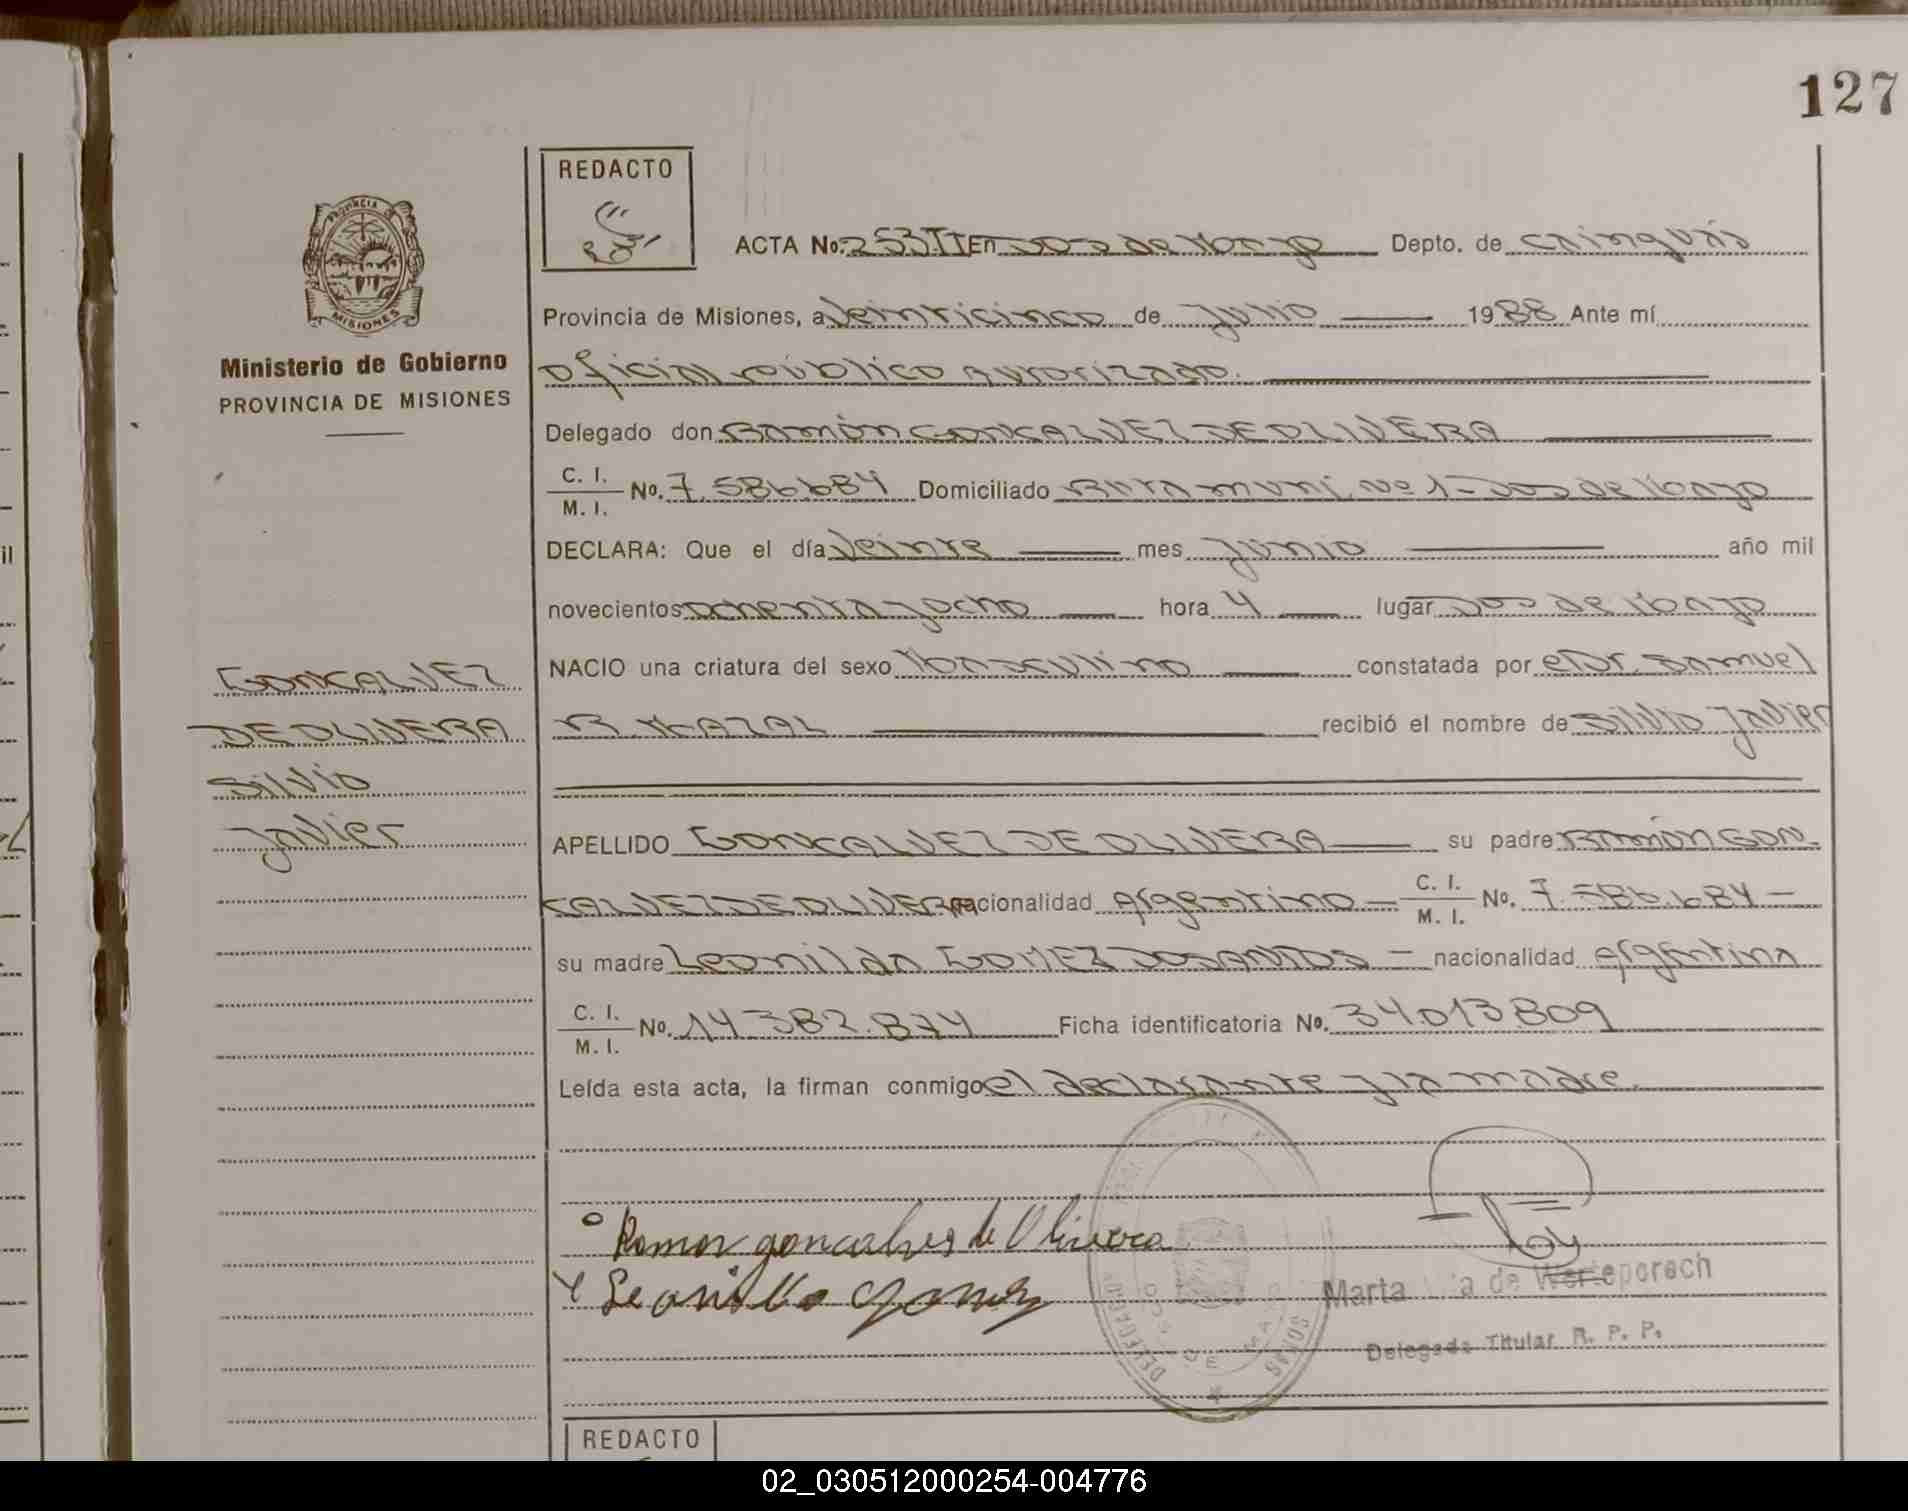 127
REDACTO
ACTA No. 253 II En Dos de Mayo Depto. de Cainguás
PROVINCIA DE
MISIONES
Provincia de Misiones, a veinticinco de Julio 1988 Ante mí
Ministerio de Gobierno
PROVINCIA DE MISIONES
Oficial público autorizado.
Delegado don RAMÓN GONCALVEZ DE OLIVERA
C. I.
M. I. No. 7.586.684 Domiciliado Ruta muni. Nº 1 - Dos de Mayo
DECLARA: Que el día veinte mes Junio año mil
novecientos ochenta y ocho hora 4 lugar Dos de Mayo
NACIO una criatura del sexo Masculino constatada por el Dr. Samuel
R. MAZAL recibió el nombre de Silvio Javier
GONCALVEZ
DE OLIVERA
Silvio
Javier
APELLIDO GONCALVEZ DE OLIVERA su padre RAMÓN GON-
CALVEZ DE OLIVERA nacionalidad Argentino C. I.
M. I. No. 7.586.684 -
su madre Leonilda GOMEZ DOSANTOS - nacionalidad Argentina
C. I.
M. I. No. 14.382.874 Ficha identificatoria No. 34.013.809
Leída esta acta, la firman conmigo el declarante y la madre.
Ramon goncalves de Olivera
Leonilda Gomez
Marta de Werteporach
Delegada Titular R. P. P.
DOS DE MAYO
REDACTO
02_030512000254-004776